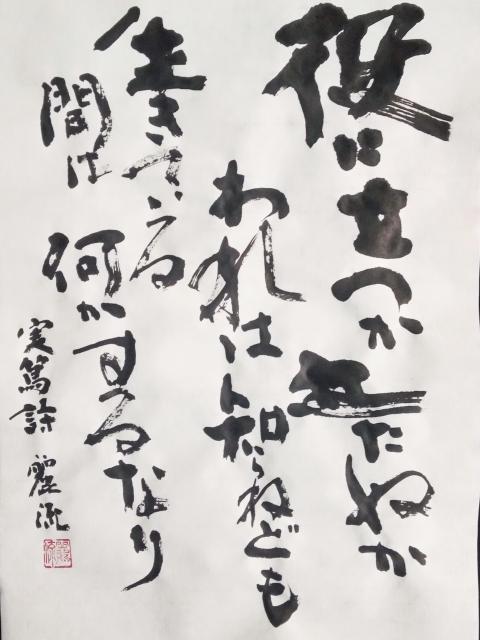 役に立つか立たぬか
われは知らねども
生きている
間は何かするなり
実篤詩